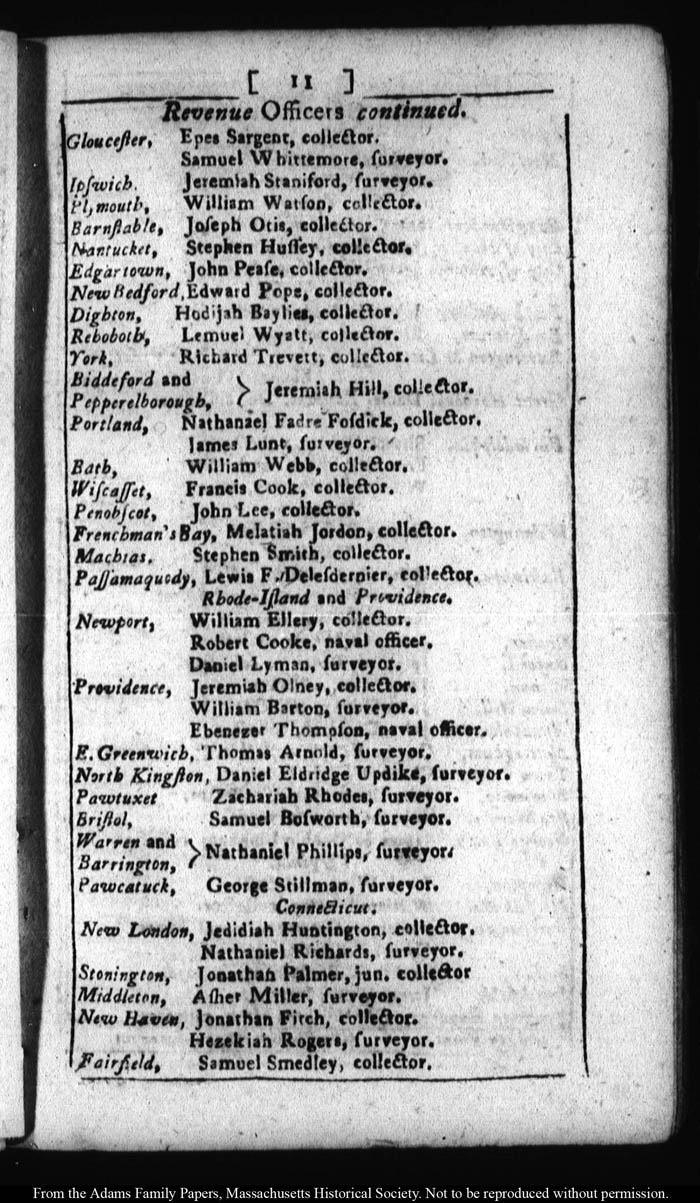 [ 11 ]
Revenue Officers continued.
Glouceſter, Epes Sargent, collector.
Samuel Whittemore, ſurveyor.
Ipſwich. Jeremiah Staniford, ſurveyor.
Plymouth, William Watſon, collector.
Barnſtable, Joſeph Otis, collector.
Nantucket, Stephen Huſſey, collector.
Edgartown, John Peaſe, collector.
New Bedford, Edward Pope, collector.
Dighton, Hodijah Baylies, collector.
Rehoboth, Lemuel Wyatt, collector.
York, Richard Trevett, collector.
Biddeford and
Pepperelborough, } Jeremiah Hill, collector.
Portland, Nathanael Fadre Foſdick, collector.
James Lunt, ſurveyor.
Bath, William Webb, collector.
Wiſcaſſet, Francis Cook, collector.
Penobſcot, John Lee, collector.
Frenchman's Bay, Melatiah Jordon, collector.
Machias. Stephen Smith, collector.
Paſſamaquody, Lewis F. Deleſdernier, collector.
Rhode-Iſland and Providence.
Newport, William Ellery, collector.
Robert Cooke, naval officer.
Daniel Lyman, ſurveyor.
Providence, Jeremiah Olney, collector.
William Barton, ſurveyor.
Ebenezer Thompſon, naval officer.
E. Greenwich, Thomas Arnold, ſurveyor.
North Kingſton, Daniel Eldridge Updike, ſurveyor.
Pawtuxet Zachariah Rhodes, ſurveyor.
Briſtol, Samuel Boſworth, ſurveyor.
Warren and
Barrington, } Nathaniel Phillips, ſurveyor.
Pawcatuck, George Stillman, ſurveyor.
Connecticut.
New London, Jedidiah Huntington, collector.
Nathaniel Richards, ſurveyor.
Stonington, Jonathan Palmer, jun. collector
Middleton, Aſher Miller, ſurveyor.
New Haven, Jonathan Fitch, collector.
Hezekiah Rogers, ſurveyor.
Fairfield, Samuel Smedley, collector.
From the Adams Family Papers, Massachusetts Historical Society. Not to be reproduced without permission.